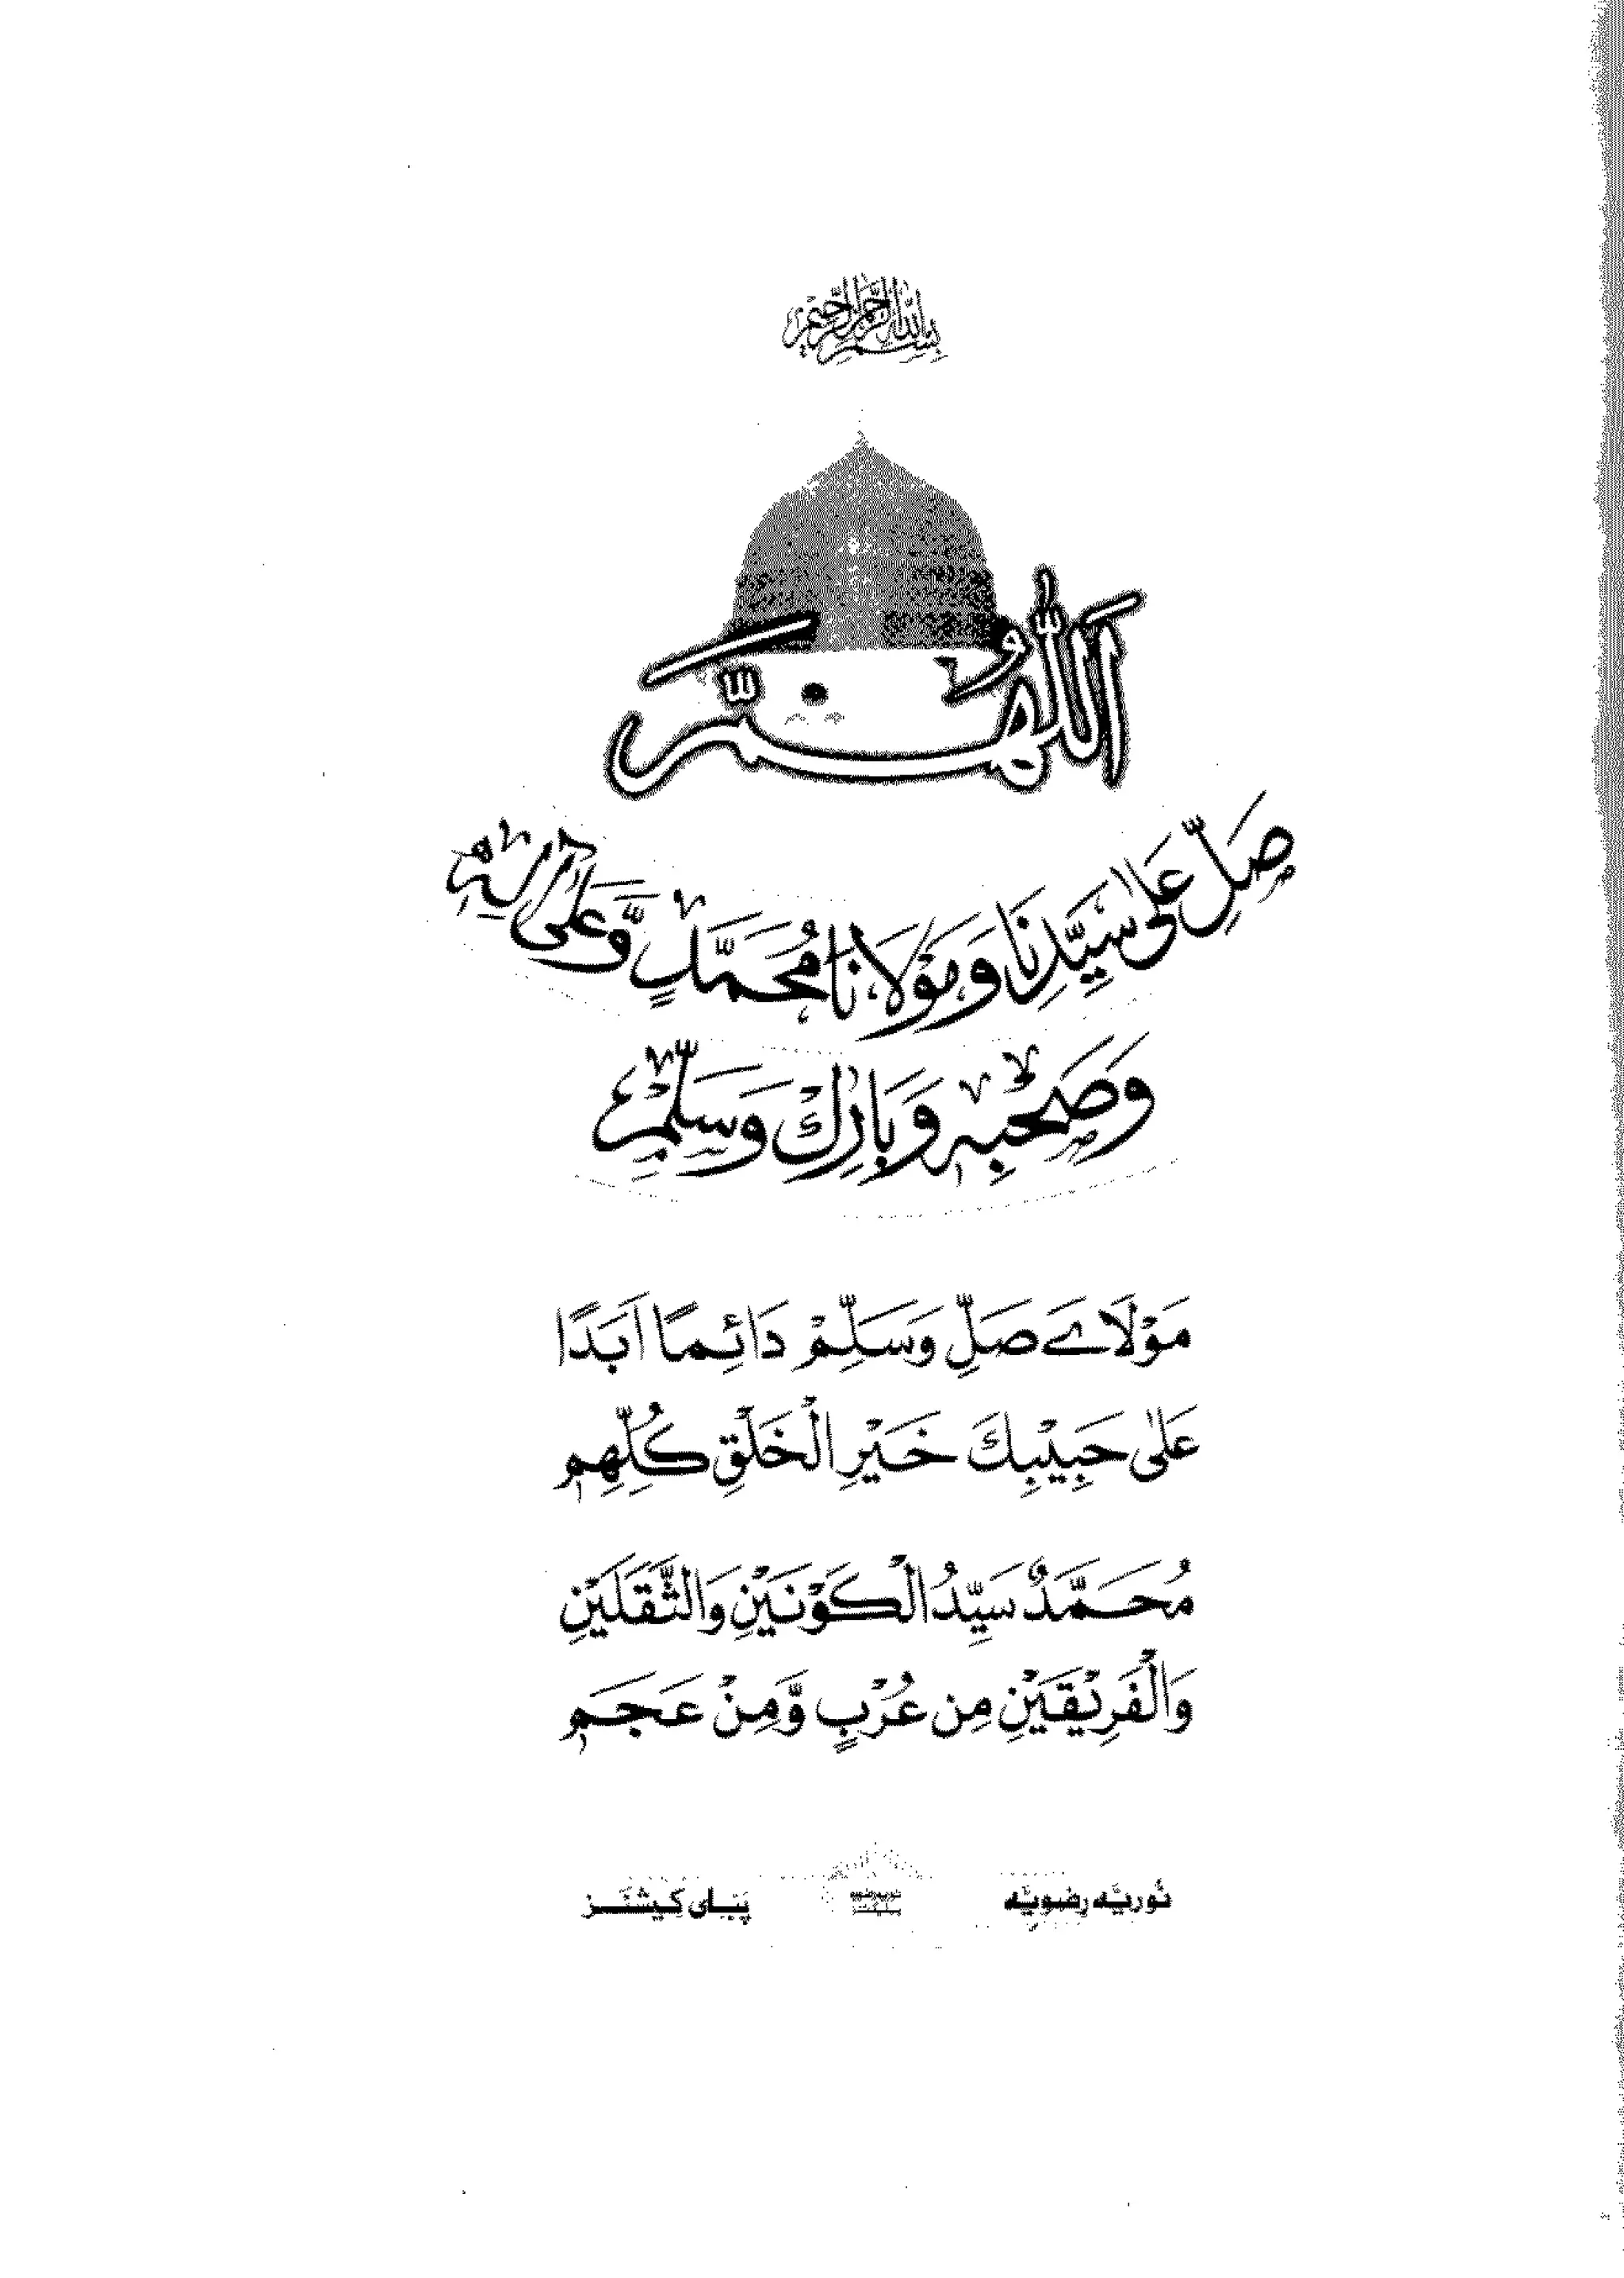 بِسْمِ اللهِ الرَّحْمٰنِ الرَّحِيْمِ
اَللّٰهُمَّ
صَلِّ عَلٰى سَيِّدِنَا وَمَوْلَانَا مُحَمَّدٍ وَّعَلٰى آلِهٖ
وَصَحْبِهٖ وَبَارِكْ وَسَلِّمْ
مَوْلَاےَ صَلِّ وَسَلِّمْ دَائِمًا اَبَدًا
عَلٰى حَبِيْبِكَ خَيْرِ الْخَلْقِ كُلِّهِمٖ
مُحَمَّدٌ سَيِّدُ الْكَوْنَيْنِ وَالثَّقَلَيْنِ
وَالْفَرِيْقَيْنِ مِن عُرْبٍ وَّمِنْ عَجَمٖ
نُوریَّه رِضویَّه پَبلی کیشَنَز